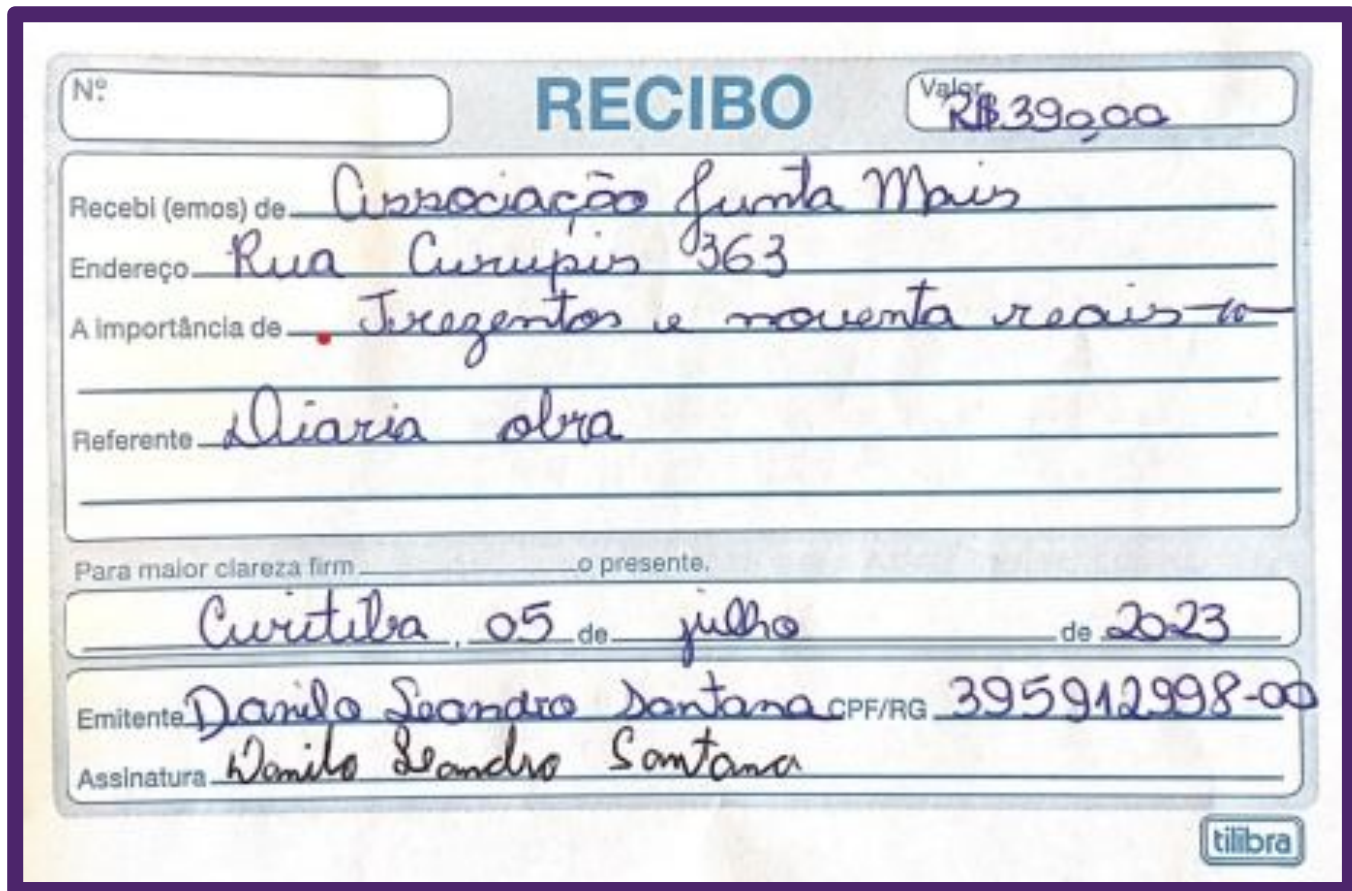 Nº
RECIBO
Valor
R$ 390,00
Recebi (emos) de Associação Junta Mais
Endereço Rua Curupis 363
A importância de Trezentos e noventa reais
Referente Diaria obra
Para maior clareza firm o presente.
Curitiba, 05 de julho de 2023
Emitente Danilo Leandro Santana CPF/RG 395912998-00
Assinatura Danilo Leandro Santana
tilibra